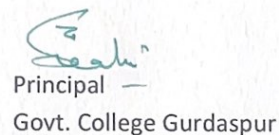 Principal
Govt. College Gurdaspur